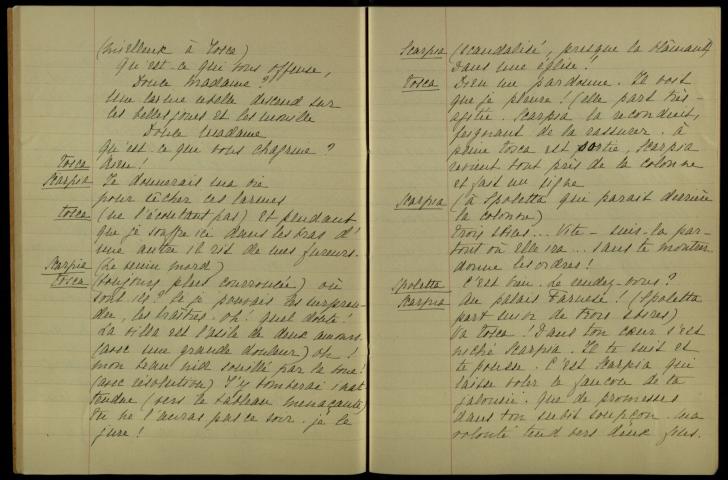 (mielleux à Tosca)
Qu'est-ce qui vous offense,
Douce Madame?
Une larme rebelle descend sur
les belles joues et les mouille
Douce Madame
Qu'est-ce que vous chagrine?
Tosca Rien!
Scarpia Je donnerais ma vie
pour sécher ces larmes
Tosca (ne l'écoutant pas) et pendant
que je souffre ici dans les bras d'
une autre il rit de mes fureurs.
Scarpia (Le venin mord)
Tosca (toujours plus courroucée) où
sont-ils? Si je pouvais les surpren-
dre, les traîtres. Oh! quel doute!
La villa est l'asile de deux amours.
(avec une grande douleur) oh!
mon beau nid souillé par la boue!
(avec résolution) J'y tomberai inat-
tendue (vers le tableau menaçante)
Tu ne l'auras pas ce soir. je le
jure!
Scarpia (scandalisé, presque la blâmant)
Dans une église!
Tosca Dieu me pardonne. Il voit
que je pleure! (elle part très-
agitée. Scarpia la reconduit,
feignant de la rassurer. à
peine Tosca est sortie, Scarpia
revient tout près de la colonne
et fait un signe
Scarpia (à Spoletta qui parait derrière
la colonne)
Trois sbires... Vite - suis-la par-
tout où elle ira... sans te montrer
donne les ordres!
Spoletta C'est bien. Le rendez-vous?
Scarpia Au palais Farnèse! (Spoletta
part suivi de trois sbires)
Va Tosca! Dans ton cœur s'est
niché Scarpia. Il te suit et
te pousse. C'est Scarpia qui
laisse voler le faucon de ta
jalousie. que de promesses
dans ton subit soupçon. Ma
volonté tend vers deux fins.